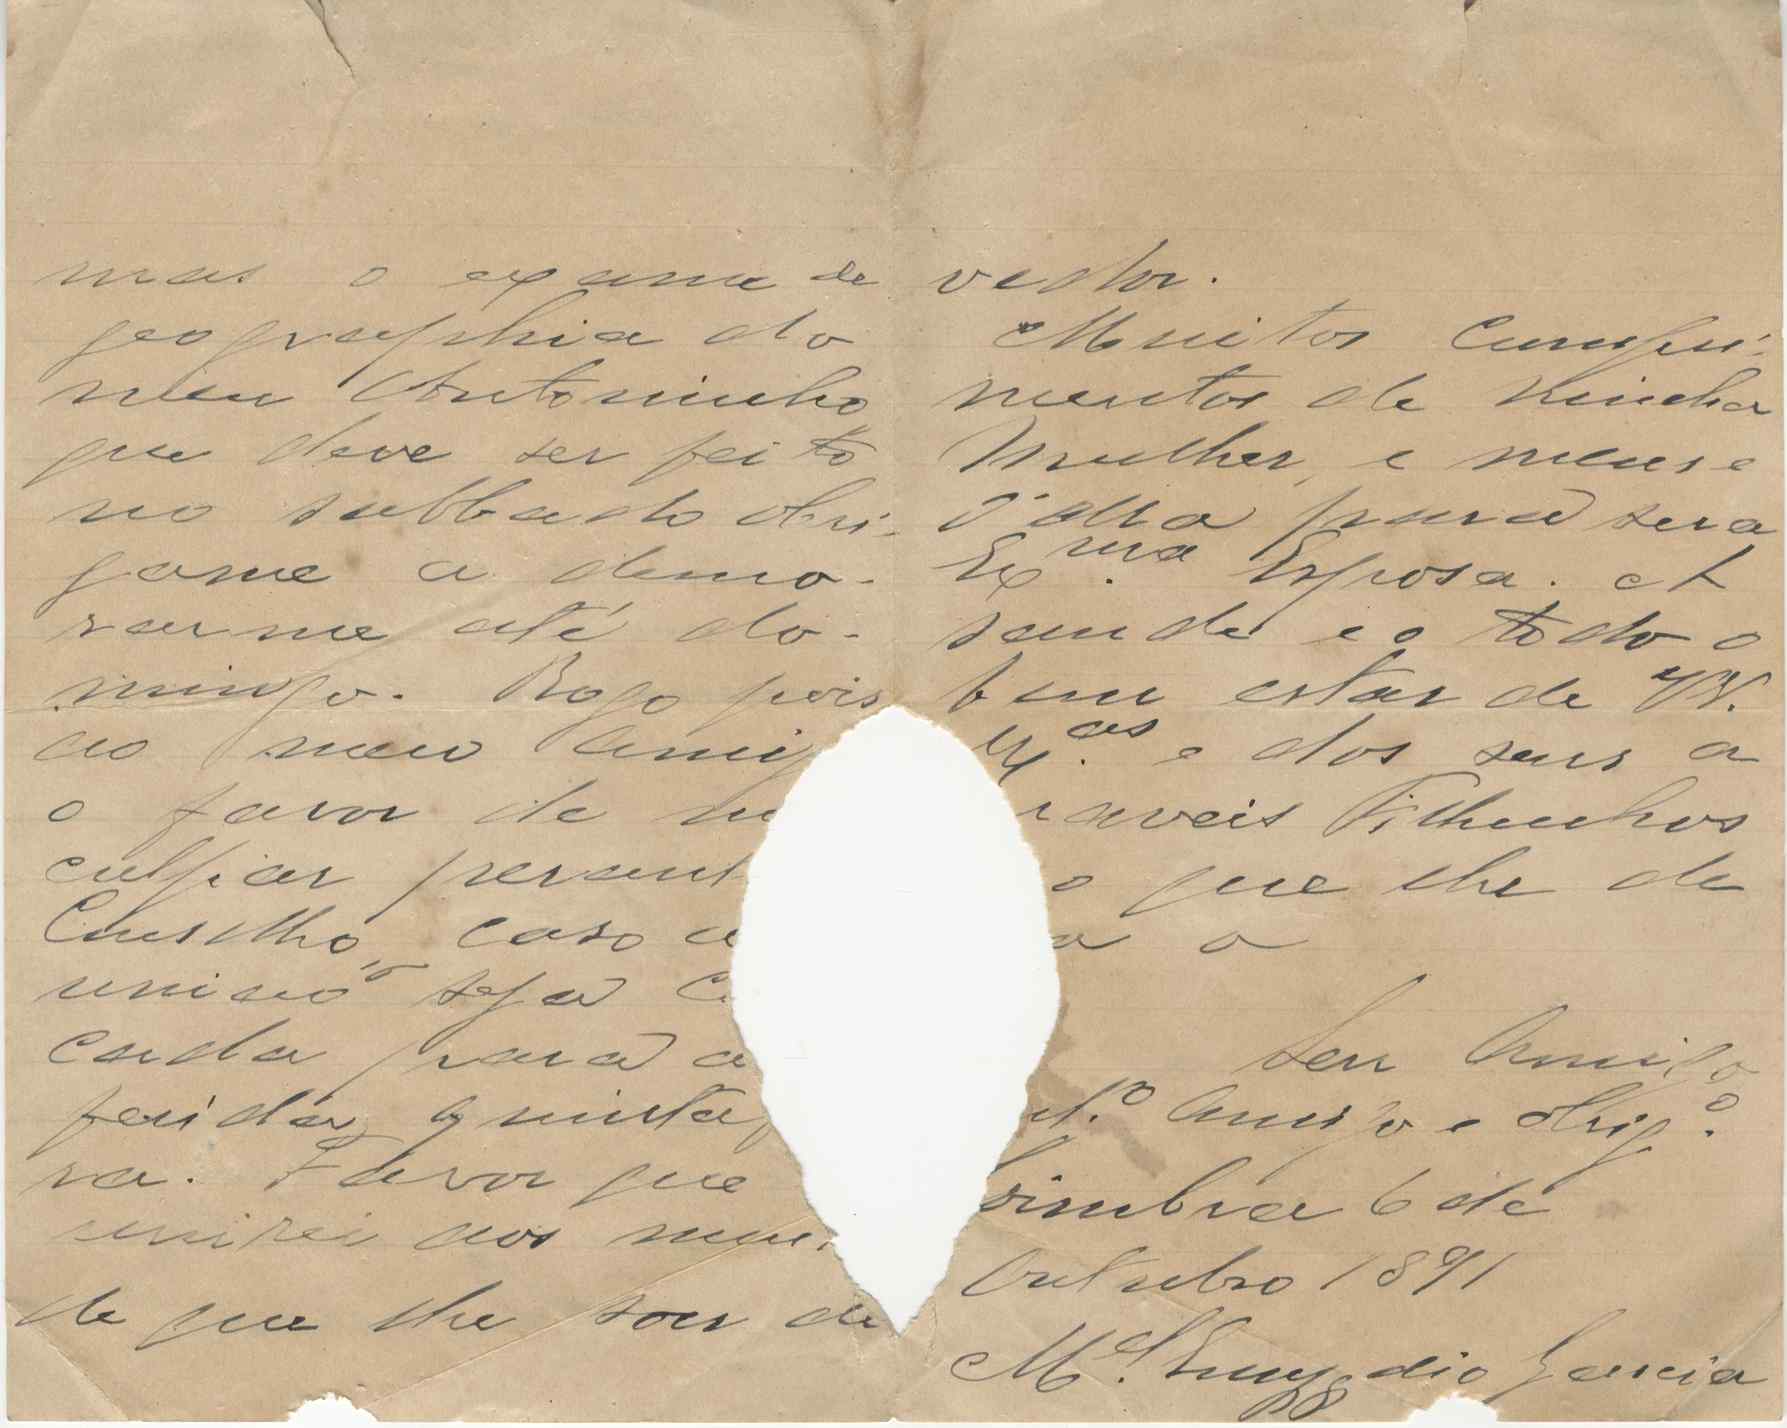 mas o exame de
geographia do
meu Antoninho
que deve ser feito
no sabbado obri-
game a demo-
rarme até do-
mingo. Rogo pois
ao meu amig
o favor de m
culpar perant
Conselho, caso a
união seja C
cada para a
ferida quinta f
ra. Favor que
unirei aos mui
de que lhe sou de
vedor.
Muitos Cumpri-
mentos de minha
Mulher, e meus e
d'ella para sua
Ex.ma Esposa. A
saude e o todo o
bem estar de VV.
Ex.as e dos seus a
raveis Filhinhos
o que lhe de
a o
Seu Amigo
t.º Amigo e Obrig.º
oimbra 6 de
Outubro 1891
M.el Emygdio Garcia